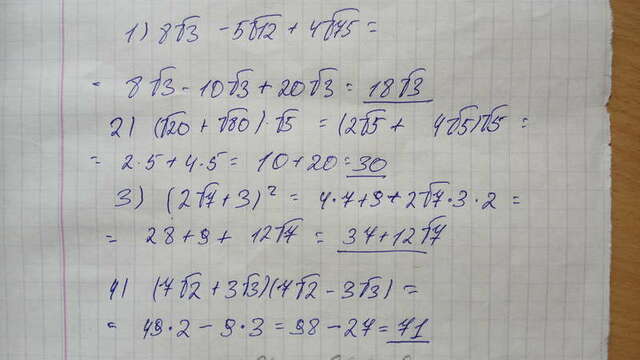 1) 8√3 - 5√12 + 4√75 =
= 8√3 - 10√3 + 20√3 = 18√3
2) (√20 + √80)·√5 = (2√5 + 4√5)√5 =
= 2·5 + 4·5 = 10 + 20 = 30
3) (2√7 + 3)² = 4·7 + 9 + 2√7·3·2 =
= 28 + 9 + 12√7 = 37 + 12√7
4) (7√2 + 3√3)(7√2 - 3√3) =
= 49·2 - 9·3 = 98 - 27 = 71